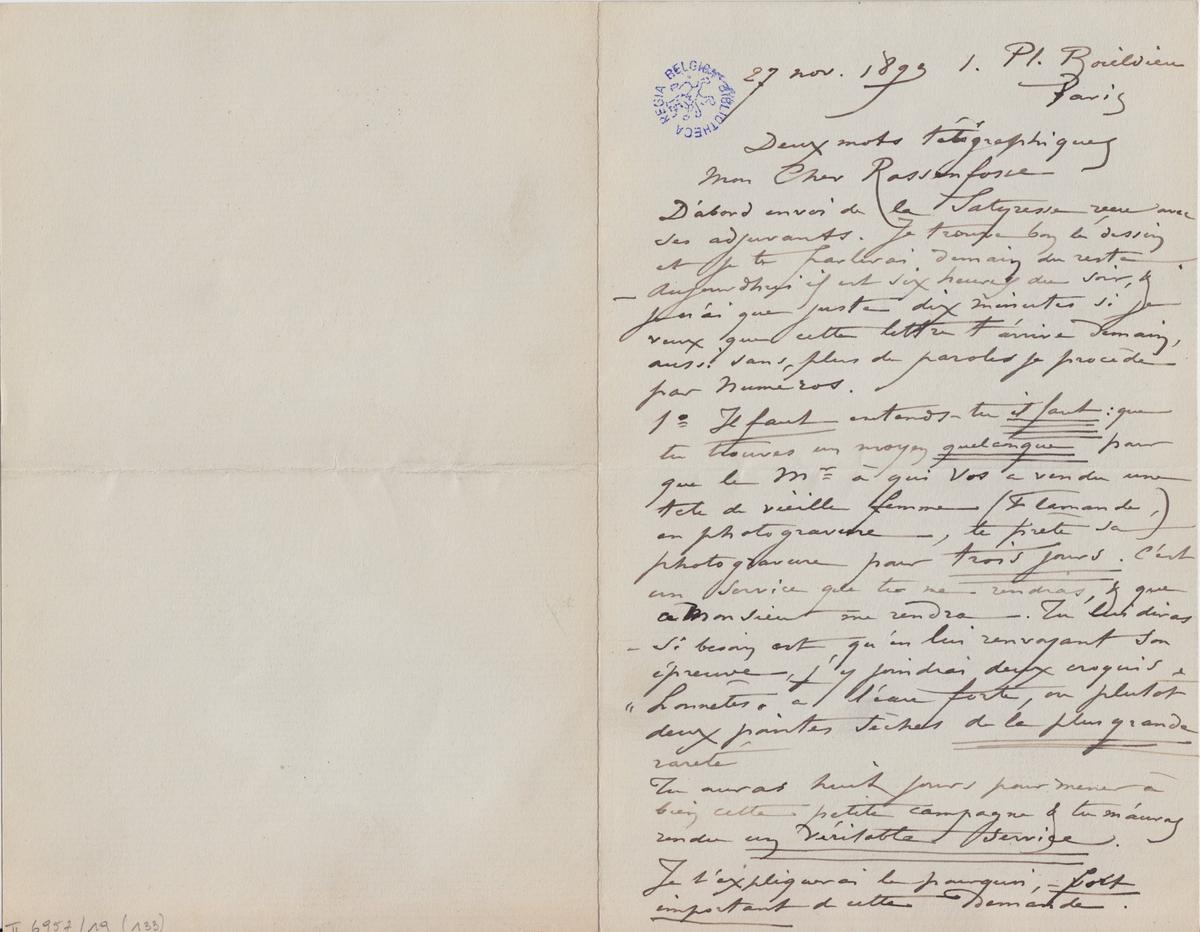 BIBLIOTHECA REGIA BELGICA
27 nov. 1893 1. Pl. Boieldieu
Paris
Deux mots télégraphiques
Mon Cher Rassenfosse
D'abord envoi de la Satyresse recu avec
ses adjuvants. Je trouve bon le dessin
et je te parlerai demain du reste
– Aujourdhui il est six heures du soir, &
je n'ai que juste dix minutes si je
veux que cette lettre t'arrive demain,
aussi sans plus de paroles je procède
par Numéros.
1º Il faut entends-tu il faut : que
tu trouves un moyen quelconque pour
que le Mr à qui Vos a vendu une
tête de vieille femme (Flamande,)
en photogravure –, te prete sa
photogravure pour trois jours. C'est
un service que tu me rendras, & que
ce Monsieur me rendra –. Tu lui diras
– si besoin est, qu'en lui renvoyant son
épreuve, j'y joindrai deux croquis
"honnêtes" à l'eau forte, ou plutot
deux pointes sèches de la plus grande
rareté
Tu auras huit jours pour mener à
bien cette petite campagne & tu m'auras
rendu un Véritable Service.
Je t'expliquerai le pourquoi, – fort
important de cette Demande.
II 6957/19 (133)